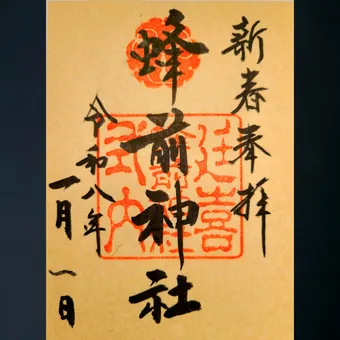 新春奉拝
蜂前神社
令和八年
一月一日
延喜
式内